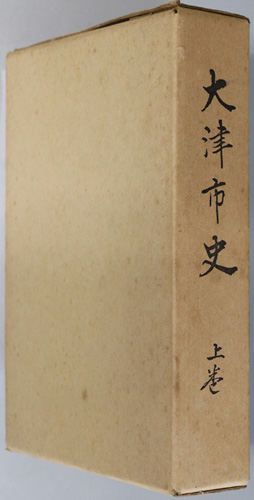 大津市史
上巻